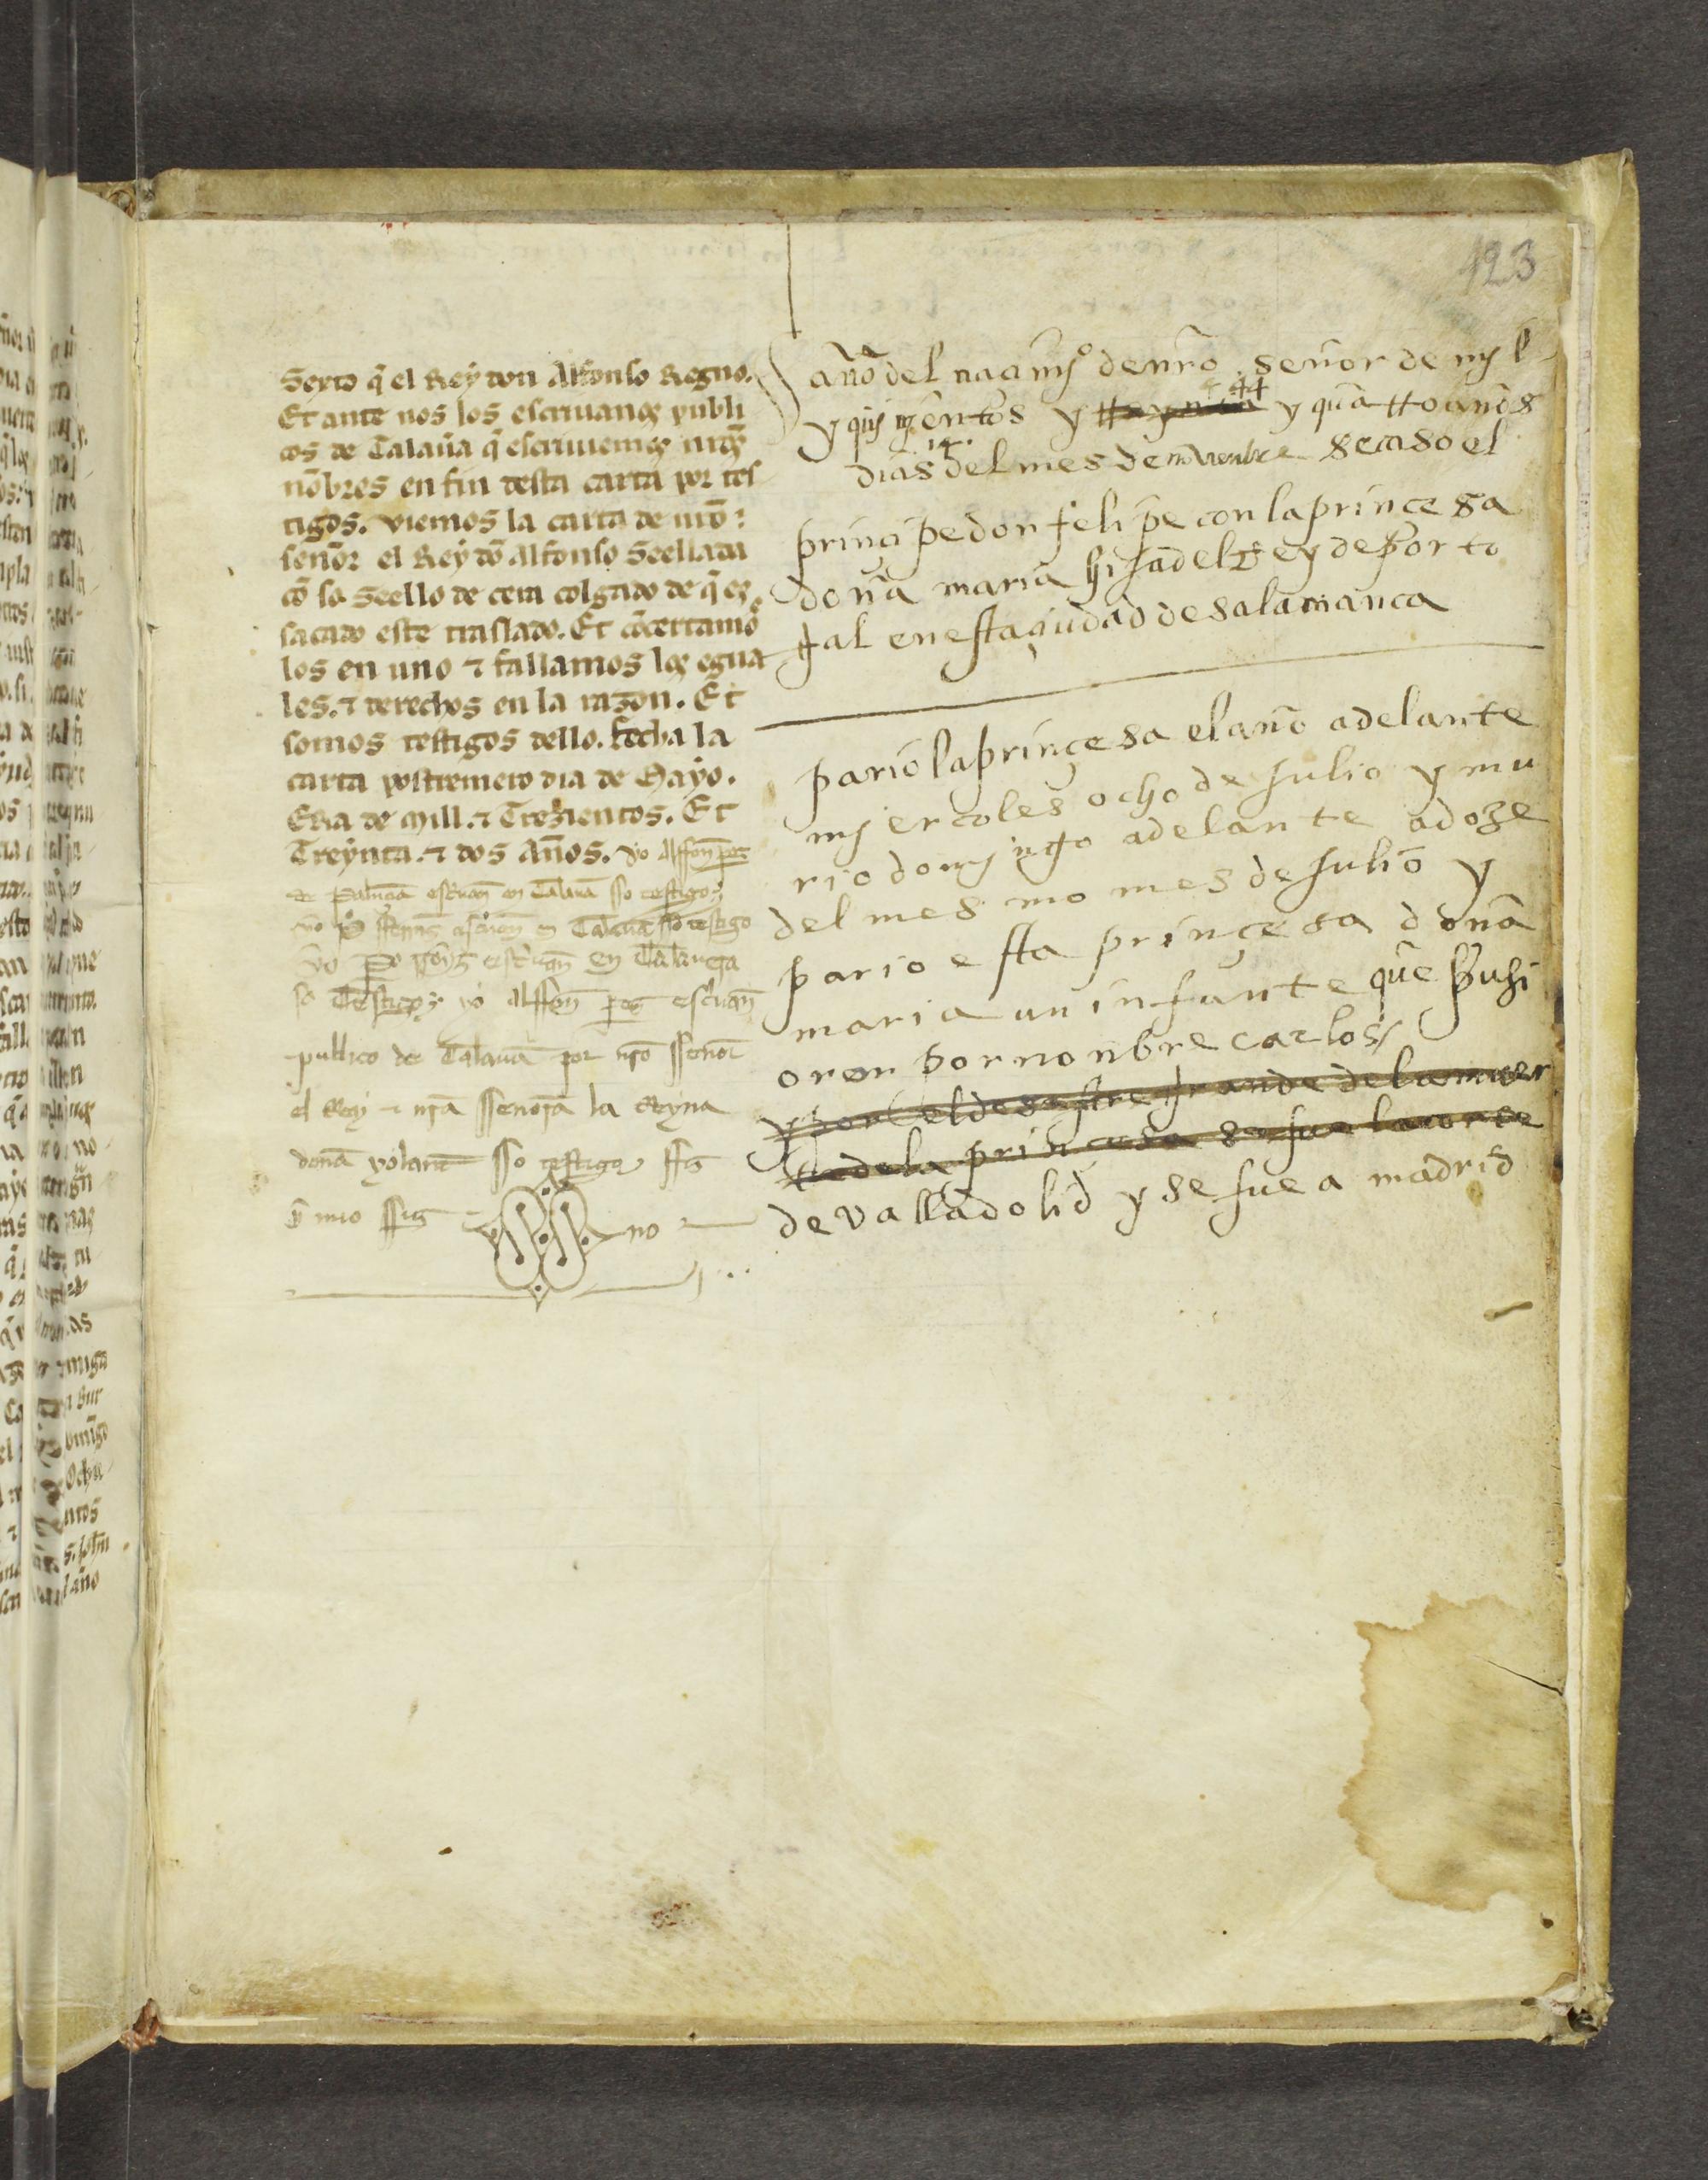 423
Sexto q̃ el Rey don Alfonso Regno.
Et ante nos los escriuanos publi
cos de Talauã q̃ escriuiemos nr̃os
nõbres en fin desta carta por tes
tigos. viemos la carta de nr̃o
señor el Rey dõ Alfonso Seellada
cõ so Seello de cera colgado de q̃ es
sacado este traslado. Et cõcertamos
los en uno ⁊ fallamos los egua
les. ⁊ derechos en la razon. Et
somos testigos dello. fecha la
carta postremero dia de Mayo.
Era de Mill. ⁊ Trezientos. Et
Treynta. ⁊ dos Años. yo Alffon peͬs
de escriuañ en Talauã sso testigo
yo escriuañ en Talauã sso testigo
yo escriuañ en Talauera
so Testigo yo Alffon peͬs escriuañ
publico de Talauã por nr̃o ssenor
el Rey ⁊ nr̃a ssenora la Reyna
doña yolant sso testigo
mio sig no
año del nacimj° de nr̃o señor de mjl
y qujnjentos y treynta 44 y quatro años
14.
dias del mes de noviembre se caso el
principe don felipe con la princesa
doña maria hija del rey de porto
gal en esta çiudad de salamanca
pario la prinçesa el año adelante
mjercoles ocho de julio y mu
rio domjngo adelante a doze
del mesmo mes de julio y
pario esta prinçesa doña
maria un infante que pusi
oron por nonbre carlos
y por el desastre grande de la muer
te de la prinçesa se fue la corte
de valladolid y se fue a madrid